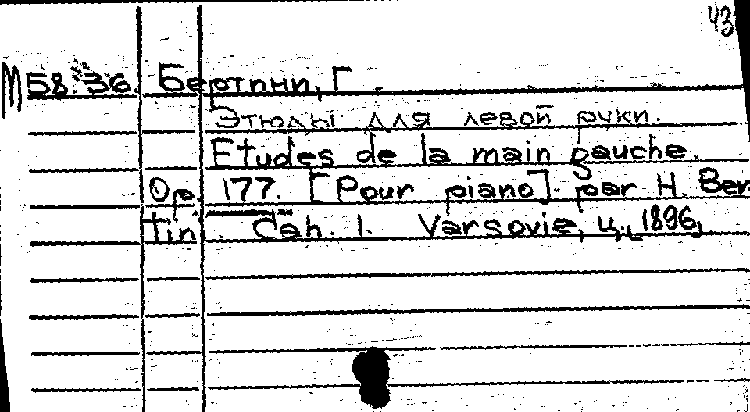 43
М 58.36. Бертини, Г.
Этюды для левой руки.
Etudes de la main gauche.
Op. 177. [Pour piano] par H. Ber-
tin. Cah. 1. Varsovie, ц., 1896,